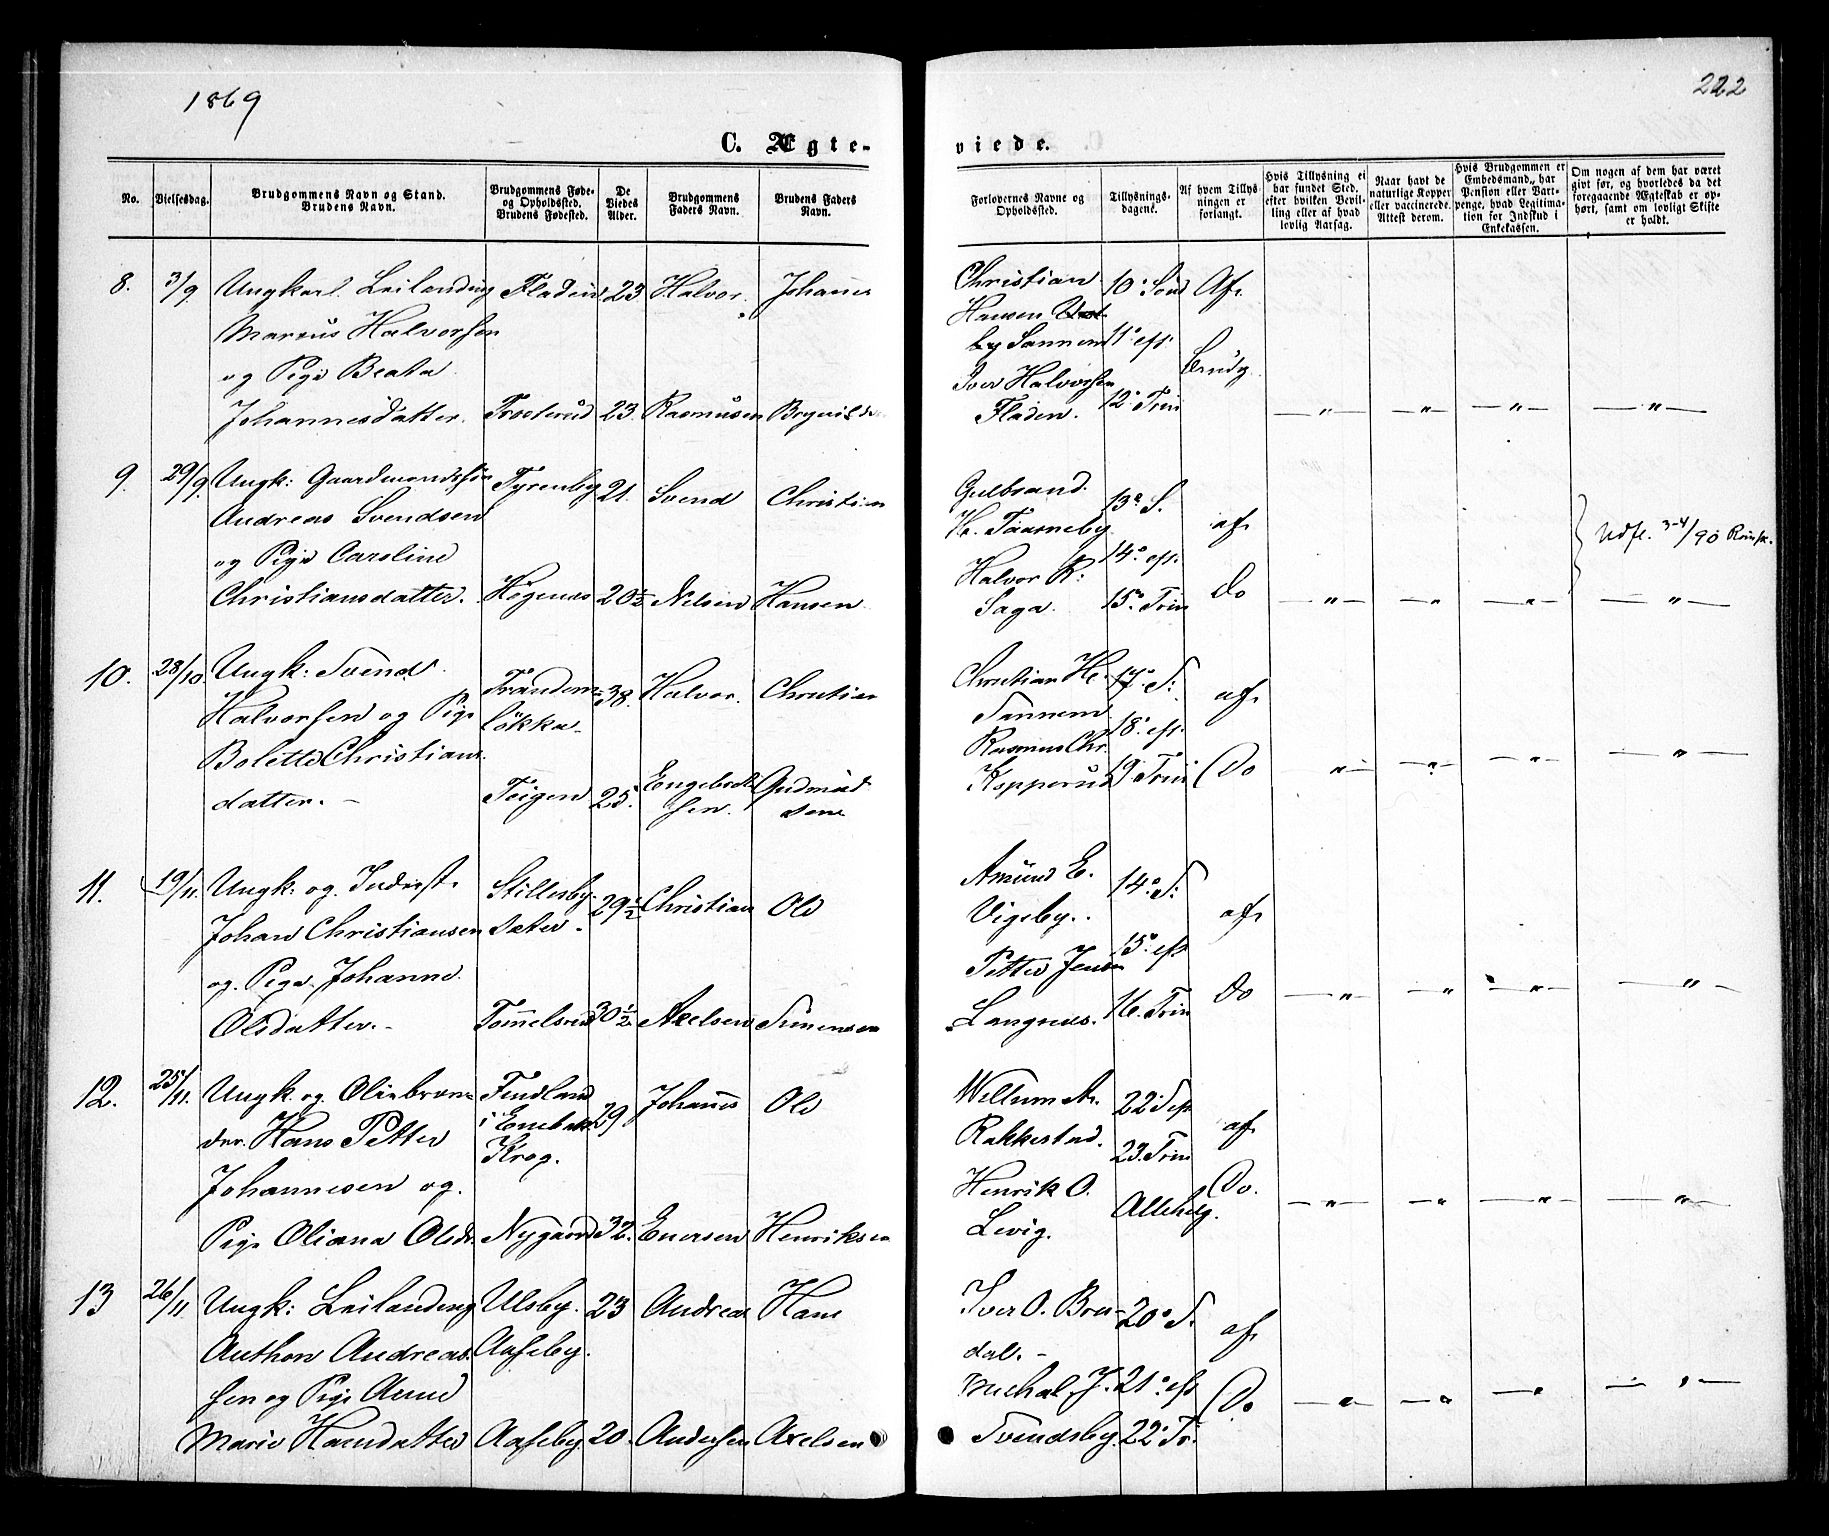 1869
222
C. Ægte-
viede.
No.
Vielsesdag.
Brudgommens Navn og Stand.
Brudens Navn.
Brudgommens Føde-
og Opholdssted.
Brudens Fødested.
De
Viedes
Alder.
Brudgommens
Faders Navn.
Brudens Faders
Navn.
Forlovernes Navne og
Opholdssted.
Tillysnings-
dagene.
Af hvem Tillys-
ningen er
forlangt.
Hvis Tillysning ei
har fundet Sted,
efter hvilken Bevil-
ling eller af hvad
lovlig Aarsag.
Naar havt de
naturlige Kopper
eller vaccinerede.
Attest derom.
Hvis Brudgommen er
Embedsmand, har
Pension eller Vart-
penge, hvad Legitima-
tion for Indskud i
Enkekassen.
Om nogen af dem har været
givt før, og hvorledes da det
foregaaende Ægteskab er op-
hørt, samt om lovligt Skifte
er holdt.
8. 3/9 Ungkarl. Leilending Fladen 23 Halvor Johannes
Marcus Halvorsen
og Pige Beata
Johannesdatter. Frosterud 23. Rasmusen Brynilds
Christian 10. Sønd Af
Hansen
by Sannem 11. eft: Brudg.
Iver Halvorsen
Fladen. 12. Trin
9. 29/9 Ungk: Gaardmandssøn Tyrenby 21. Svend Christian
Andreas Svendsen
og Pige Caroline
Christiansdatter. Högenes 20½ Nelsen Hansen
Gulbrand 13. S.
H. Taarneby af
Halvor R: 14. eft.
Saga. 15. Trin Do
Udfl. 3-4/90
10. 28/10. Ungk: Svend 38. Halvor. Christian
Halvorsen og Pige lökka
Bolette Christians
datter. Teigen 25. Engebret Gudmund
sen. sen
Christian H. 17. S: af
Sannem 18. eft.
Rasmus Chr.
Kopperud 19. Trin Do
11. 19/11. Ungk: og Inderst. Stillesby 29½ Christian Ole
Johan Christiansen Sæter.
og Pige Johanne
Olsdatter. Tommelsrud 30½ Axelsen Simensen
Amund E. 14. S:
Vigeby. af
Petter Jensen 15. eft
Langnes. 16. Trin Do
12. 25/11. Ungk. og Oliebræn= 29 Johannes Ole
der. Hans Petter i Enebak
Johannesen og Krog.
Pige Oliana Olsdr. Nygaard 32. Enersen Henriksen
22 S eft
Rakkestad. 23. Trin af
Henrik O. Allehelg. Do.
Levig.
13 26/11. Ungk: Leilanding Ulsby. 23 Andreas Hans
Anthon Andreas. Aaseby.
sen og Pige Anne
Marie Hansdatter Aaseby 20. Andersen Axelsen
Iver O. Bru- 20. S. af
dal.
Michal J. 21. eft Do
Svendsby. 22. Tr.